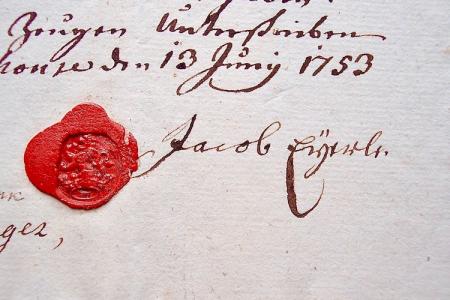 Zeugen Unterschrieben
house den 13 Junij 1753
Jacob Eÿerle
ger,